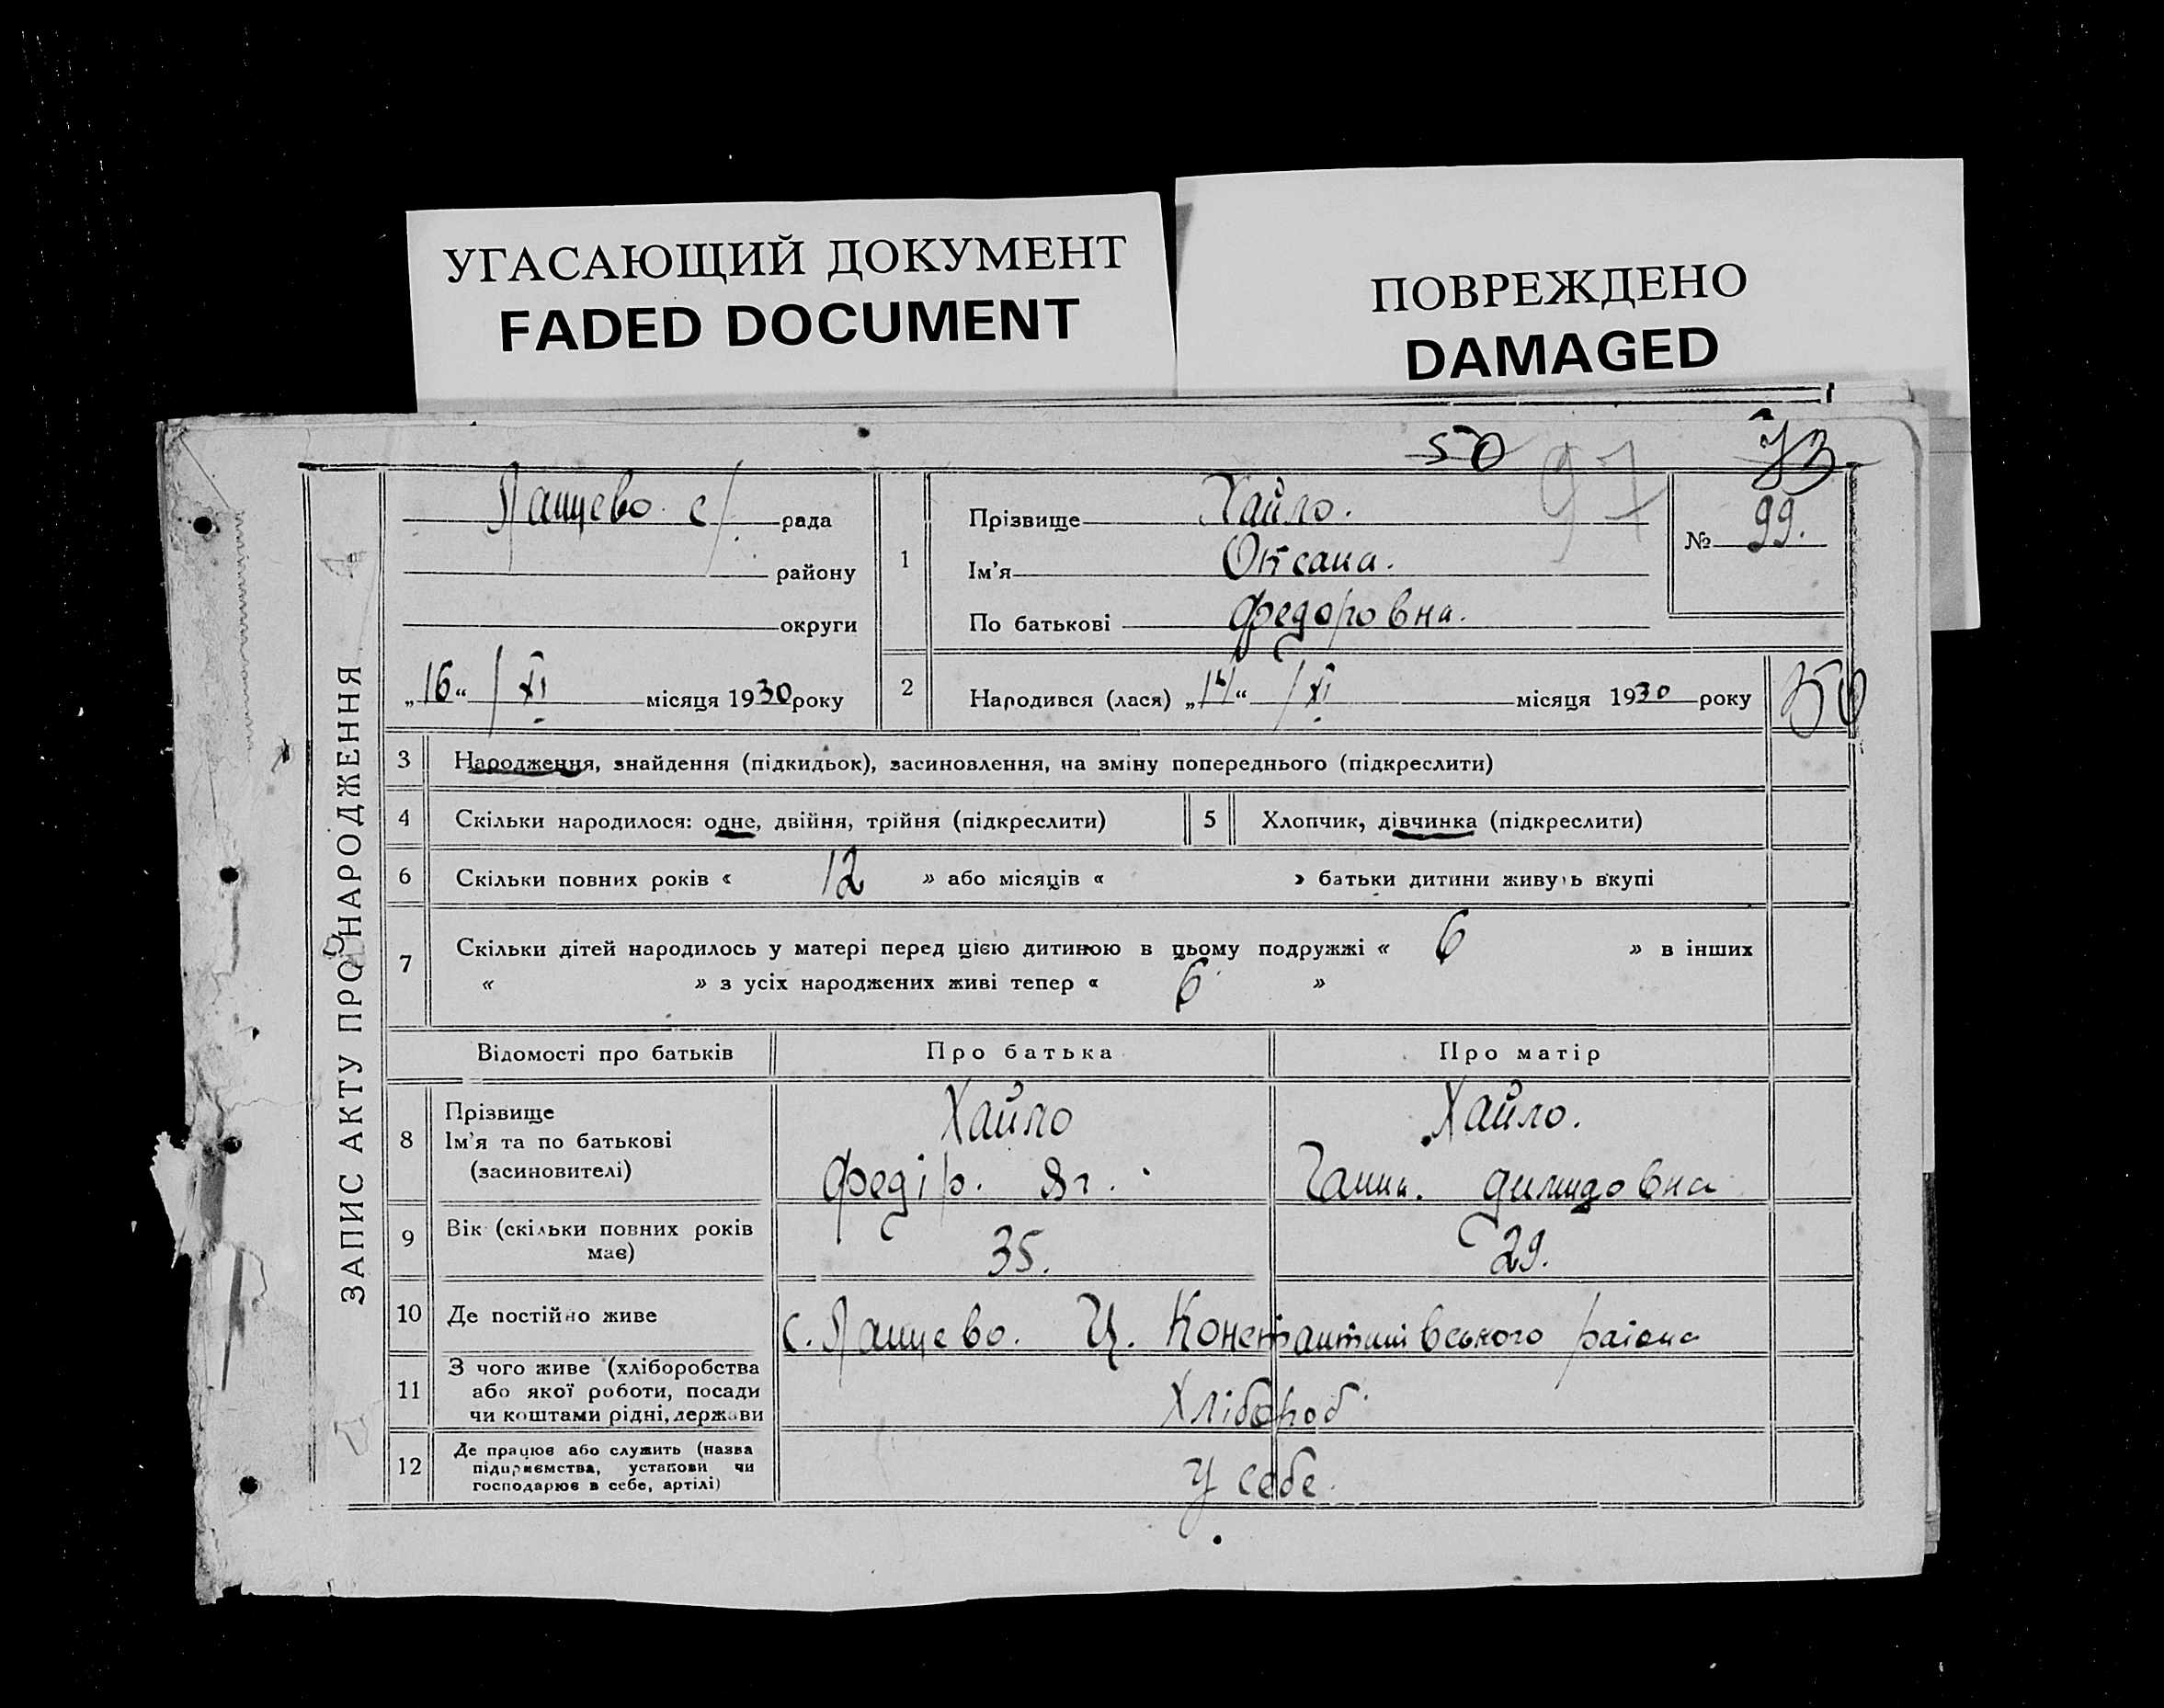 УГАСАЮЩИЙ ДОКУМЕНТ
FADED DOCUMENT
ПОВРЕЖДЕНО
DAMAGED
50 97 73
ЗАПИС АКТУ ПРО НАРОДЖЕННЯ
рада
району
округи
„16“ / XI місяця 1930 року
1
Прізвище Хайло.
Ім'я Оксана.
По батькові Федоровна.
№ 99.
2 Народився (лася) „14“ / XI місяця 1930 року
3 Народження, знайдення (підкидьок), засиновлення, на зміну попереднього (підкреслити)
4 Скільки народилося: одне, двійня, трійня (підкреслити) 5 Хлопчик, дівчинка (підкреслити)
6 Скільки повних років « 12 » або місяців « » батьки дитини живуть вкупі
7 Скільки дітей народилось у матері перед цією дитиною в цьому подружжі « 6 » в інших
« » з усіх народжених живі тепер « 6 »
Відомості про батьків Про батька Про матір
8 Прізвище
Ім'я та по батькові
(засиновителі)
Хайло
Федір.
Хайло.
Ганна.
9 Вік (скільки повних років
має)
35. 29.
10 Де постійно живе
с. Ц. Константинівського
11 З чого живе (хліборобства
або якої роботи, посади
чи коштами рідні, держави
Хлібороб.
12 Де працює або служить (назва
підприємства, установи чи
господарює в себе, артілі)
У себе.